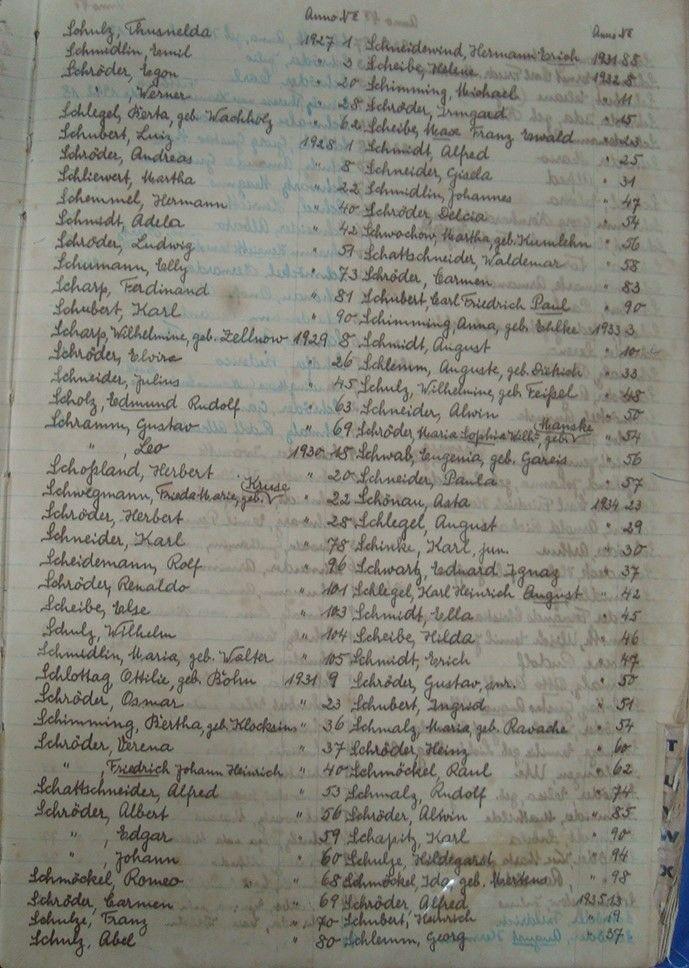 Anno No
Anno No
Schulz, Thusnelda 1927 1
Schmidlin, Emil " 3
Schröder, Egon " 20
" , Werner " 28
Schlegel, Berta, geb. Wachholz " 62
Schubert, Luiz 1928 1
Schröder, Andreas " 8
Schliewert, Martha " 22
Schemmel, Hermann " 40
Schmidt, Adela " 42
Schröder, Ludwig " 57
Schumann, Elly " 73
Scharp, Ferdinand " 81
Schubert, Karl " 90
Scharp, Wilhelmine, geb. Zellnow 1929 8
Schröder, Elvira " 26
Schneider, Julius " 45
Scholz, Edmund Rudolf " 63
Schramm, Gustav " 69
" , Leo 1930 18
Schoßland, Herbert " 20
Schwegmann, Frieda Marie, geb. Kruse " 22
Schröder, Herbert " 28
Schneider, Karl " 78
Scheidemann, Rolf " 96
Schröder, Renaldo " 101
Scheibe, Else " 103
Schulz, Wilhelm " 104
Schmidlin, Maria, geb. Walter " 105
Schlottag, Ottilie, geb. Bohn 1931 9
Schröder, Osmar " 23
Schimming, Bertha, geb. Klocksin " 36
Schröder, Verena " 37
" , Friedrich Johann Heinrich " 40
Schattschneider, Alfred " 53
Schröder, Albert " 56
" , Edgar " 59
" , Johann " 60
Schmöckel, Romeo " 68
Schröder, Carmen " 69
Schulze, Franz " 70
Schulz, Abel " 80
Schneidewind, Hermann Erich 1931 88
Scheibe, Helene 1932 8
Schimming, Michael " 11
Schröder, Irmgard " 15
Scheibe, Max Franz Ewald "
Schmidt, Alfred " 25
Schneider, Gisela " 31
Schmidlin, Johannes " 47
Schröder, Delcia " 54
Schwochow, Martha, geb. Kumlehn " 56
Schattschneider, Waldemar " 58
Schröder, Carmen " 83
Schubert, Carl Friedrich Paul " 90
Schimming, Anna, geb. Ehlke 1933 3
Schmidt, August " 10
Schlemm, Auguste, geb. Dietrich " 33
Schulz, Wilhelmine, geb. Feißel " 48
Schneider, Alwin " 50
Schröder, Maria Sophia Wilh., geb. Manske " 54
Schwab, Eugenia, geb. Gareis " 56
Schneider, Paula " 57
Schönau, Asta 1934 23
Schlegel, August " 29
Schinke, Karl, jun. " 30
Schwarz, Eduard Ignaz " 37
Schlegel, Karl Heinrich August " 42
Schmidt, Ella " 45
Scheibe, Hilda " 46
Schmidt, Erich " 47
Schröder, Gustav, snr. " 50
Schubert, Ingrid " 51
Schmalz, Maria, geb. Ravache " 54
Schröder, Heinz " 60
Schmöckel, Raul " 62
Schmalz, Rudolf " 74
Schröder, Alwin " 85
Schapitz, Karl " 90
Schulze, Hildegard " 94
Schmöckel, Ida, geb. Mertens " 98
Schröder, Alfred 1935 13
Schubert, Heinrich " 19
Schlemm, Georg " 37
T
W
X